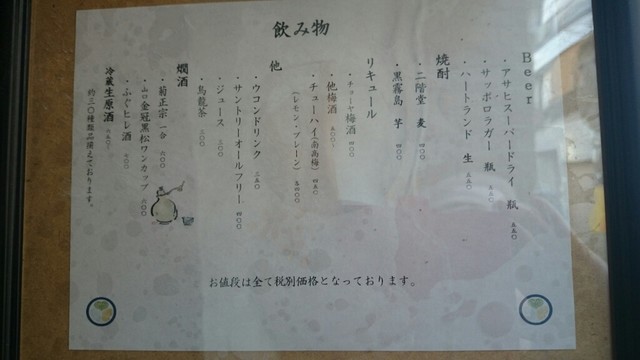 飲み物
Beer
・アサヒスーパードライ 瓶 五五〇
・サッポロラガー 瓶 五五〇
・ハートランド 生 五五〇
焼酎
・二階堂 麦 四〇〇
・黒霧島 芋 四〇〇
リキュール
・チョーヤ梅酒 四〇〇
・他梅酒 五〇〇
・チューハイ(南高梅) 四五〇
(レモン・プレーン) 各四〇〇
他
・ウコンドリンク 二五〇
・サントリーオールフリー 四〇〇
・ジュース 二〇〇
・烏龍茶 二〇〇
燗酒
・菊正宗 一合 六〇〇
・山口金冠黒松ワンカップ 六〇〇
・ふぐヒレ酒
冷蔵生原酒
約三〇種類品揃えております。
お値段は全て税別価格となっております。